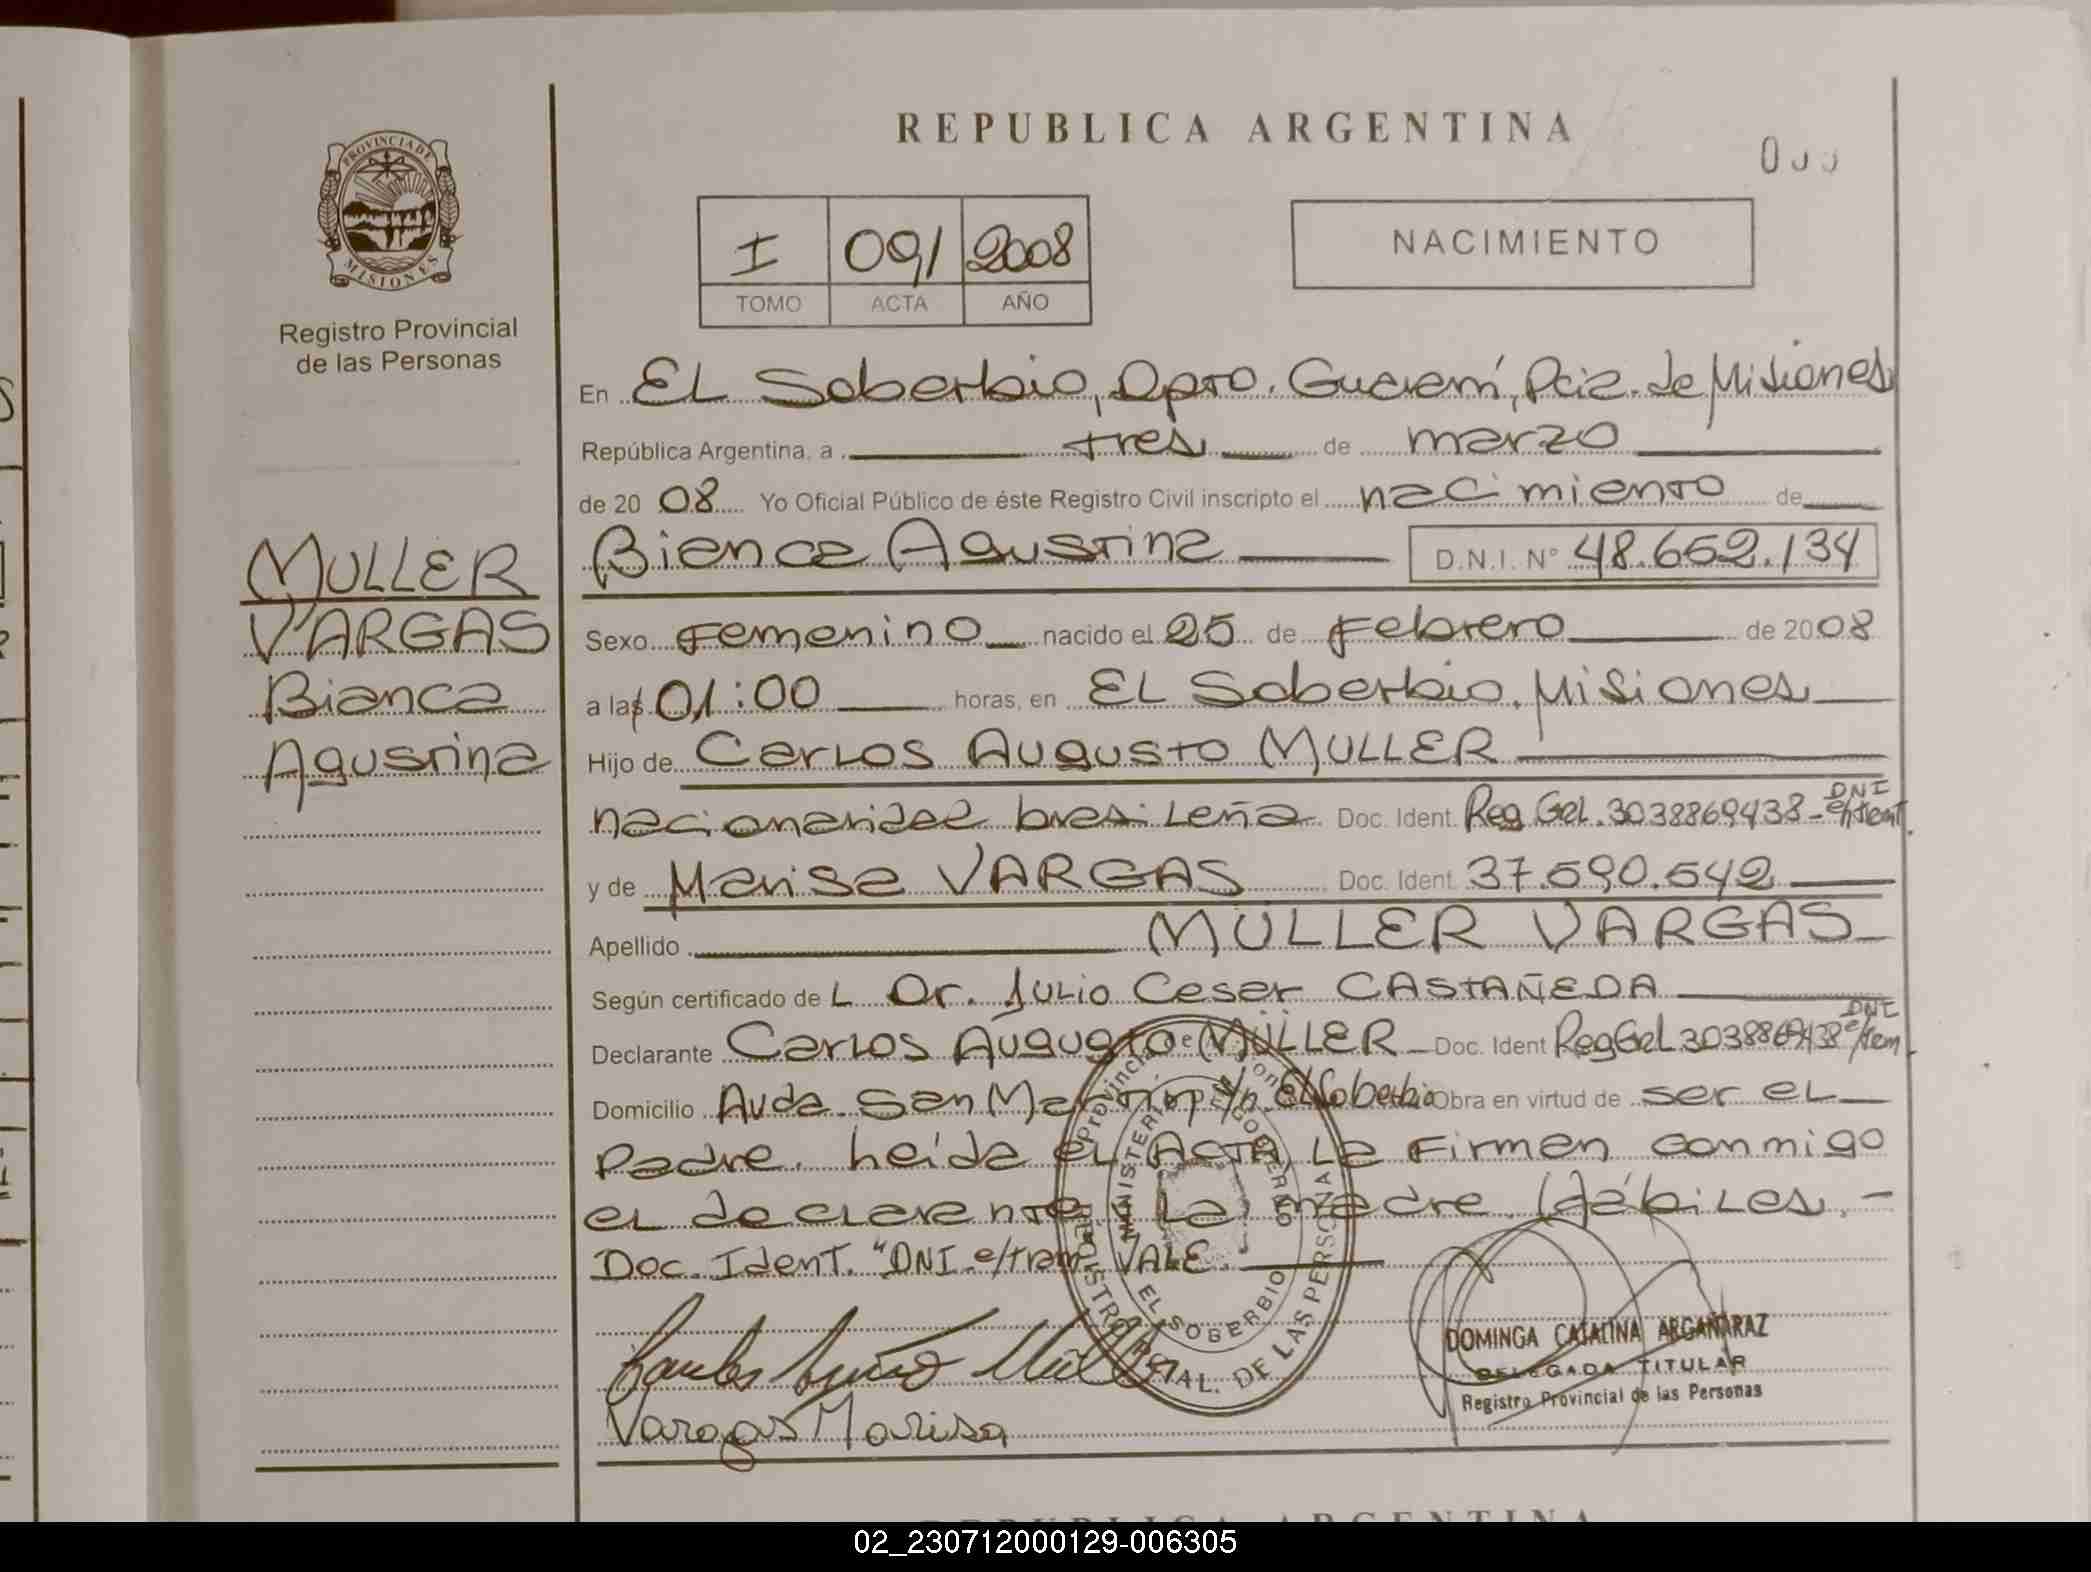 REPUBLICA ARGENTINA
PROVINCIA DE
MISIONES
Registro Provincial
de las Personas
I 091 2008
TOMO ACTA AÑO
NACIMIENTO
En EL Soberbio, Dpto. Guaraní, Pcia. de Misiones
República Argentina, a tres de marzo
de 20 08 Yo Oficial Público de éste Registro Civil inscripto el nacimiento de
Bianca Agustina D.N.I. N° 48.652.134
MULLER
VARGAS
Bianca
Agustina
Sexo Femenino nacido el 25 de Febrero de 2008
a las 01:00 horas, en EL Soberbio, Misiones
Hijo de Carlos Augusto MULLER
nacionalidad brasileña Doc. Ident. Reg Gel. 3038869438- DNI e/tramt.
y de Marisa VARGAS Doc. Ident. 37.590.542
Apellido MULLER VARGAS
Según certificado de L Dr. Julio Cesar CASTAÑEDA
Declarante Carlos Augusto MÜLLER Doc. Ident Reg Gel 3038869438 DNI e/tram
Domicilio Avda. San Martín s/n. El Soberbio Obra en virtud de ser el
Padre. Leída el ACTA La Firman conmigo
el declarante La madre. Hábiles.-
Doc. Ident. "DNI e/tram VALE.
MINISTERIO DE GOBIERNO
EL SOBERBIO
REGISTRO PCIAL. DE LAS PERSONAS
Vargas Marisa
DOMINGA CATALINA ARGAÑARAZ
DELEGADA TITULAR
Registro Provincial de las Personas
REPUBLICA ARGENTINA
02_230712000129-006305